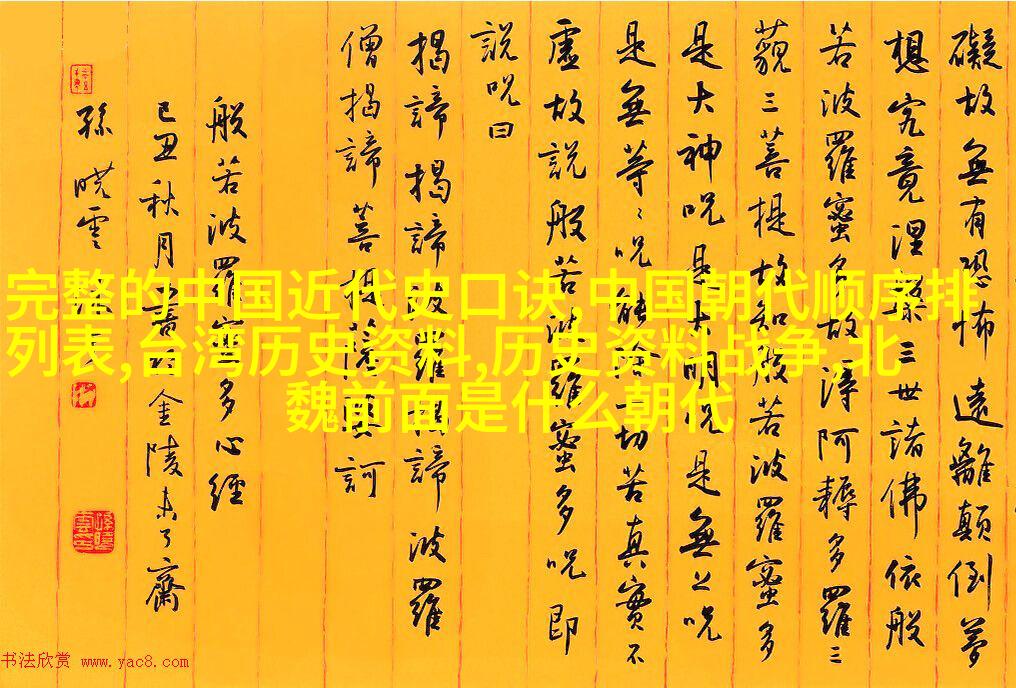 礙故無有恐怖遠離顛倒夢
想究竟涅槃三世諸佛依般
若波羅蜜多故得阿耨多羅三
藐三菩提故知般若波羅蜜多
是大神呪是大明呪是無上呪
是無等〻呪能除一切苦真實不
虛故說般若波羅蜜多呪即
說呪曰
揭諦揭諦波羅揭諦波羅
僧揭諦菩提薩婆訶
般若波羅蜜多心經
己丑秋月書金陵未了齋
孫曉雲
完整的中国近代史口诀,中国朝代顺序排
列表,台湾历史资料,历史资料战争,北
魏前面是什么朝代
书法欣赏 www.yac8.com